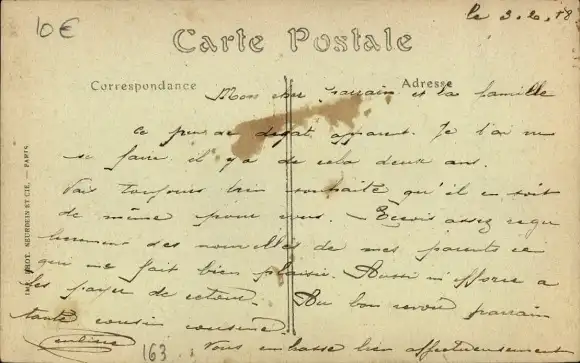 10€
le 3.6.18
Carte Postale
Correspondance
Adresse
Mon cher parrain et la famille
ce peu de dégat apparent. Je l'ai vu
se faire il y a de cela deux ans.
Vais toujours bien souhaite qu'il en soit
de même pour vous. - Reçois assez régu
des nouvelles de mes parents ce
qui me fait bien plaisir. Aussi m'efforce a
les payer de retour. Au bon revoir parrain
tante cousin cousine.
Vous embrasse bien affectueusement
163
IMP. PHOT. NEURDEIN ET CIE. — PARIS